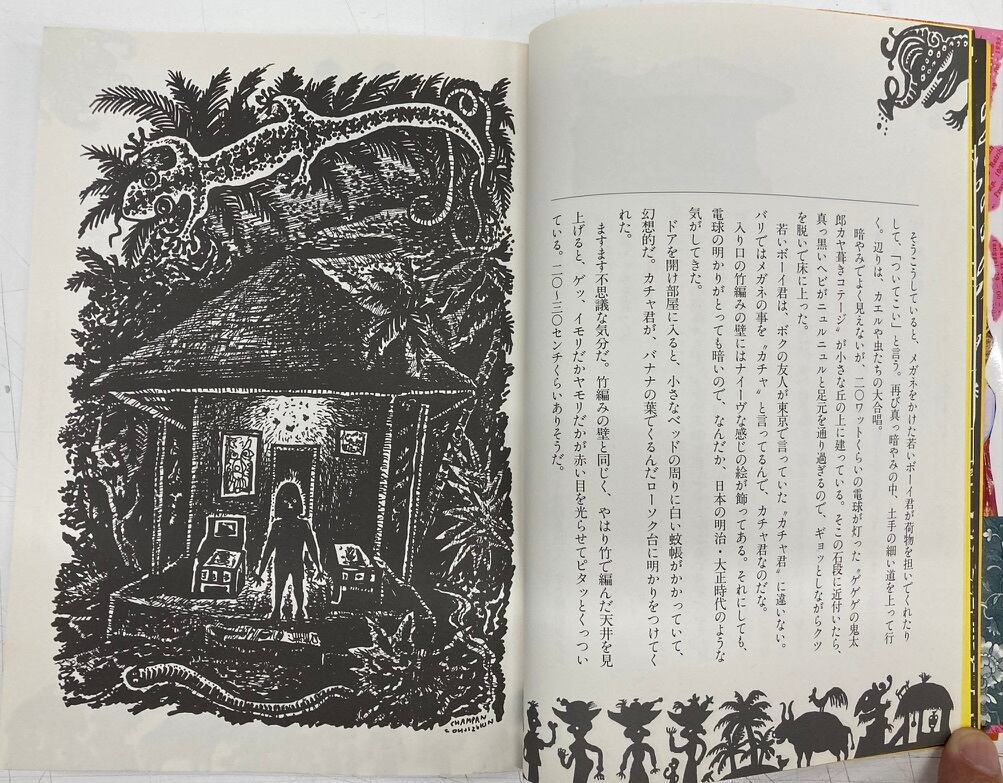 そうこうしていると、メガネをかけた若いボーイ君が荷物を担いでくれたり
して、「ついてこい」と言う。再び真っ暗やみの中、土手の細い道を上って行
く。辺りは、カエルや虫たちの大合唱。
暗やみでよく見えないが、二〇ワットくらいの電球が灯った〝ゲゲゲの鬼太
郎カヤ葺きコテージ〟が小さな丘の上に建っている。そこの石段に近付いたら、
真っ黒いヘビがニュルニュルと足元を通り過ぎるので、ギョッとしながらクツ
を脱いで床に上った。
若いボーイ君は、ボクの友人が東京で言っていた〝カチャ君〟に違いない。
バリではメガネの事を〝カチャ〟と言ってるんで、カチャ君なのだな。
入り口の竹編みの壁にはナイーヴな感じの絵が飾ってある。それにしても、
電球の明かりがとっても暗いので、なんだか、日本の明治・大正時代のような
気がしてきた。
ドアを開け部屋に入ると、小さなベッドの周りに白い蚊帳がかかっていて、
幻想的だ。カチャ君が、バナナの葉でくるんだローソク台に明かりをつけてく
れた。
ますます不思議な気分だ。竹編みの壁と同じく、やはり竹で編んだ天井を見
上げると、ゲッ、イモリだかヤモリだかが赤い目を光らせてピタッとくっつい
ている。二〇〜三〇センチくらいありそうだ。
CHAMPAN